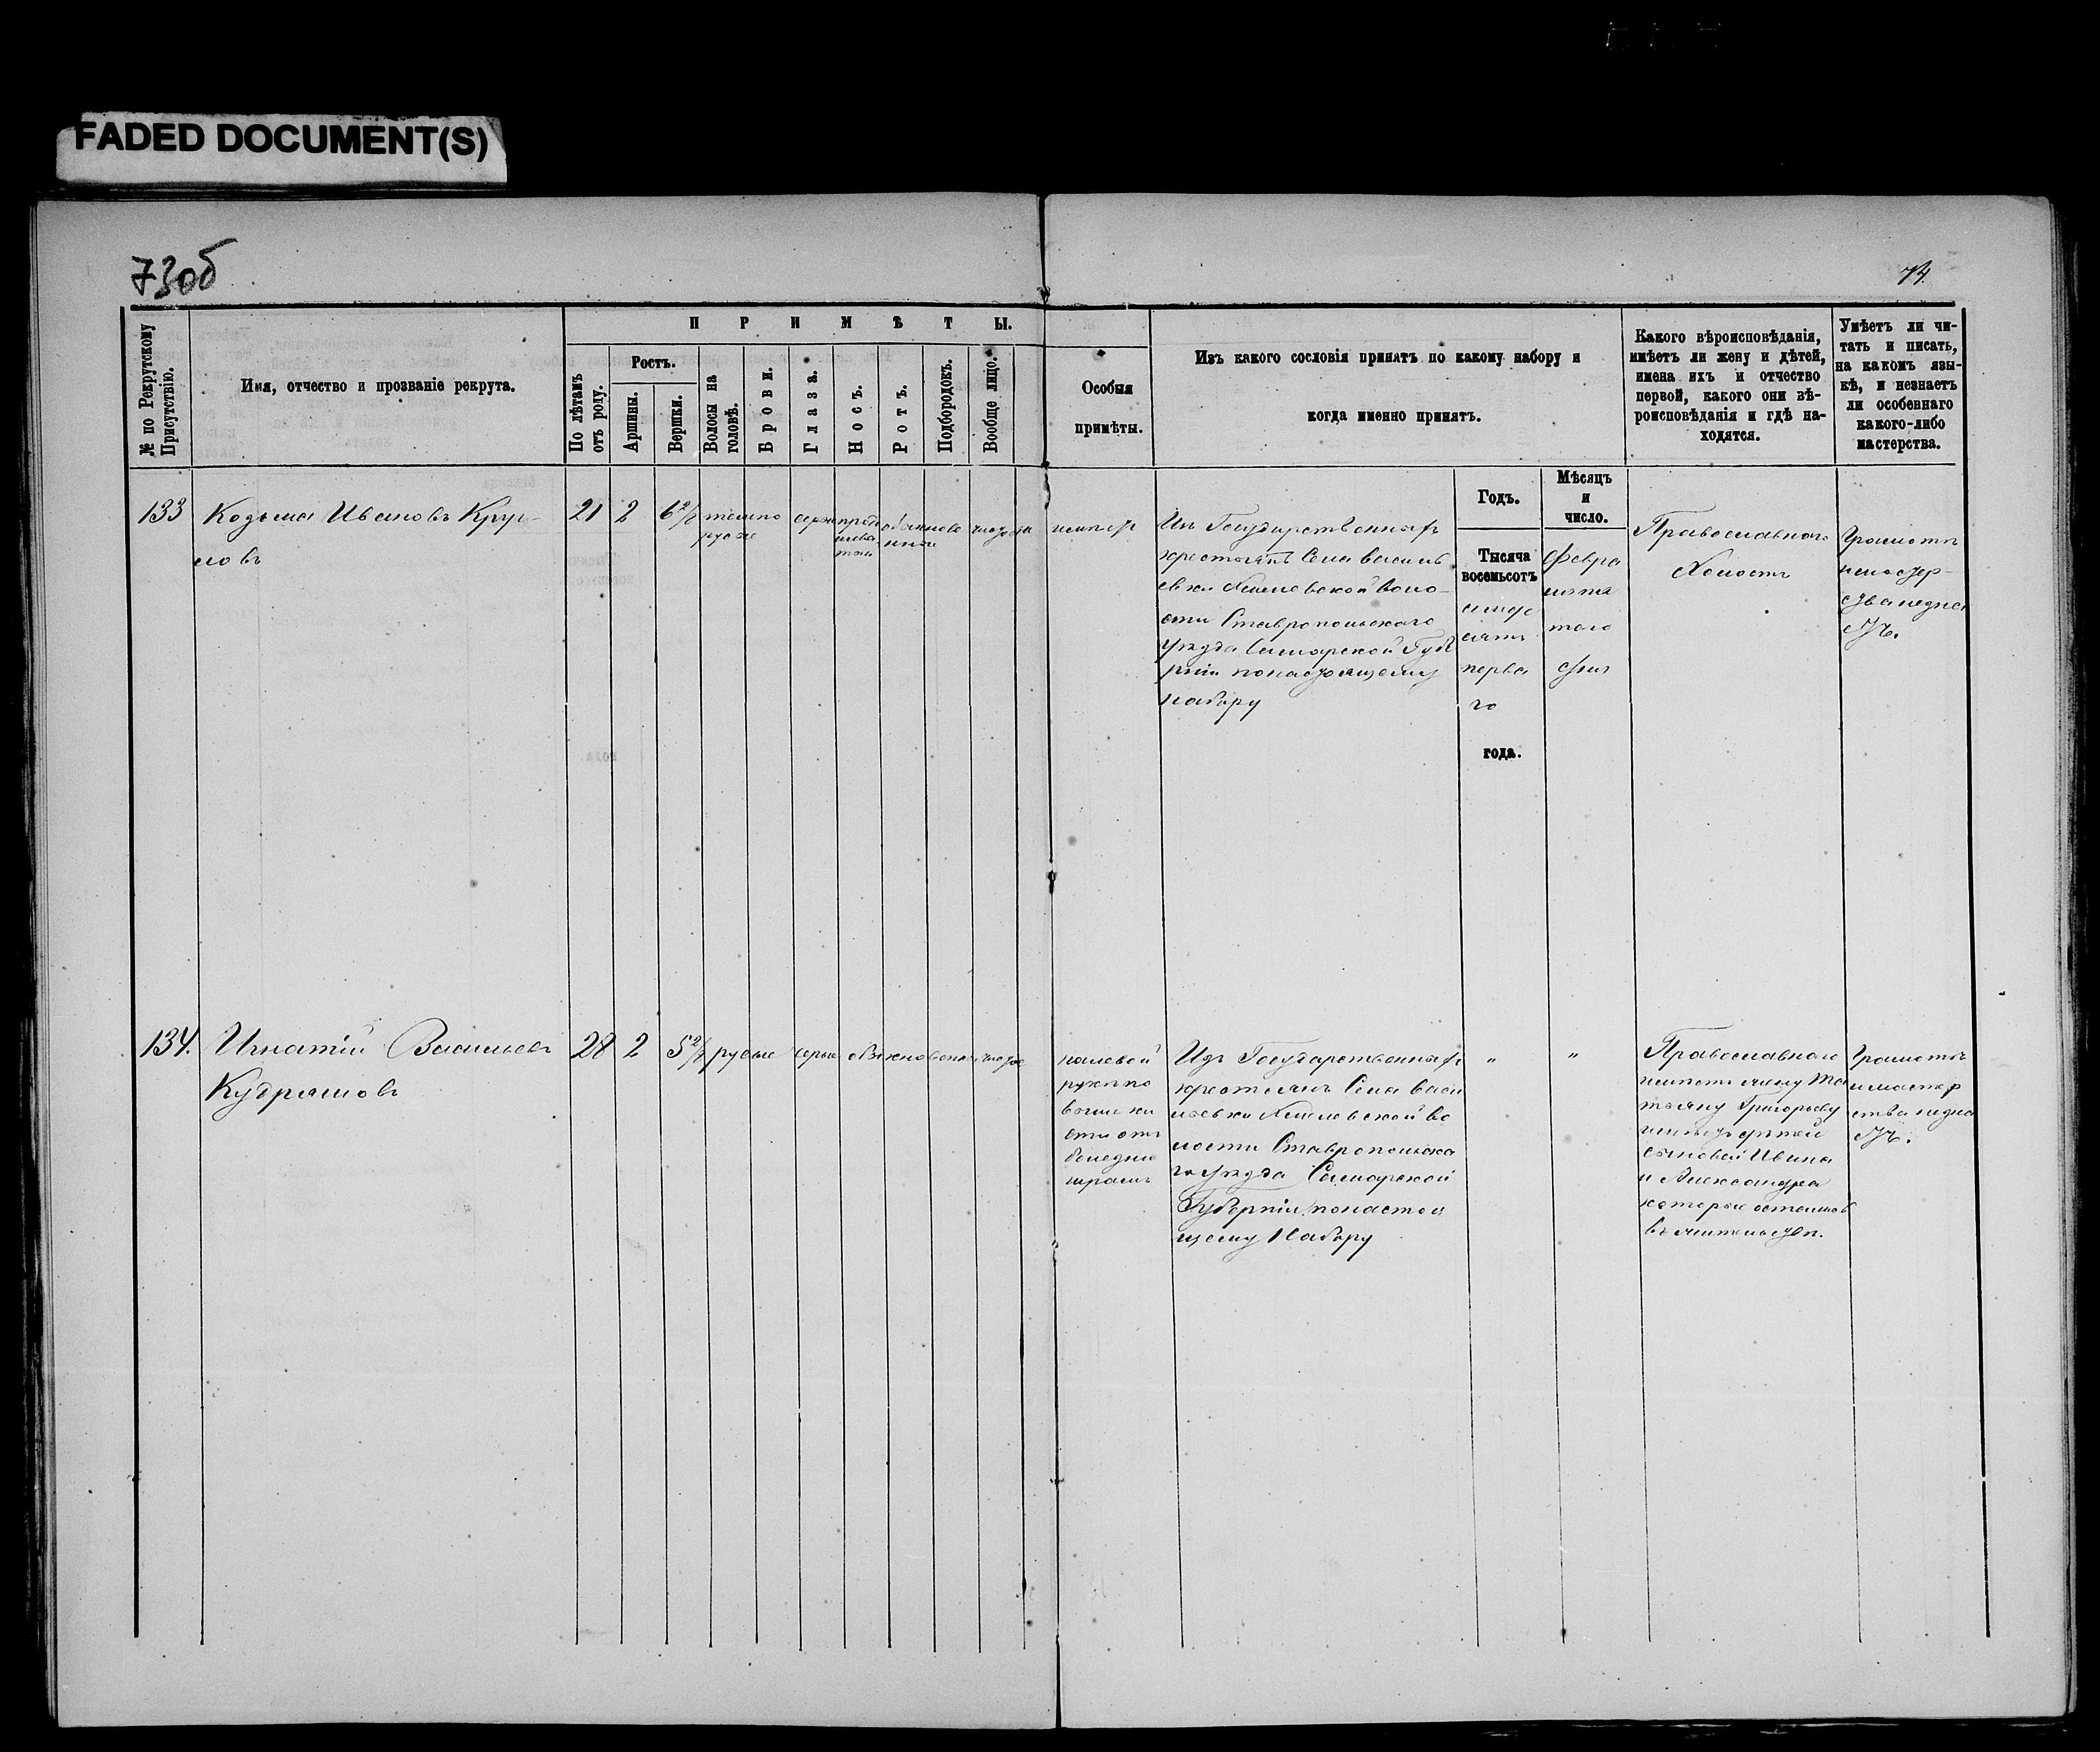 FADED DOCUMENT(S)
73об
74.
№ по Рекрутскому Присутствію.
Имя, отчество и прозваніе рекрута.
ПРИМѢТЫ.
По лѣтамъ отъ роду.
Ростъ.
Аршины.
Вершки.
Волосы на головѣ.
Брови.
Глаза.
Носъ.
Ротъ.
Подбородокъ.
Вообще лицо.
Особыя
примѣты.
Изъ какого сословія принятъ по какому набору и
когда именно принятъ.
Какого вѣроисповѣданія,
имѣетъ ли жену и дѣтей,
имена ихъ и отчество
первой, какого они вѣ-
роисповѣданія и гдѣ на-
ходятся.
Умѣетъ ли чи-
тать и писать,
на какомъ язы-
кѣ, и незнаетъ
ли особеннаго
какого-либо
мастерства.
Годъ.
Мѣсяцъ
и
число.
133
Козьма Ивановъ Круг-
ловъ
21
2
6 2/8
темно
русые
чистое
Изъ Государственныхъ
крестьянъ Села Василь
евки Хмелевской Воло-
сти Ставропольскаго
уѣзда Самарской Губе
рніи понастоящему
набору
Тысяча
восемьсотъ
семьде
сятъ
перва
го
года.
Февра
ля
того
дня
Православнаго
Холостъ
Грамотѣ
134.
Игнатій Васильевъ
Кудряшовъ
28
2
5 2/8
русые
серые
обыкновенные
чистое
на левой
руке по
выше ки
сти отъ
болезни
шрамъ
Изъ Государственныхъ
крестьянъ Села Васи
льевки Хмелевской Во
лости Ставропольска
го уѣзда Самарской
Губерніи понастоя
щему Набору
"
"
Православнаго
имѣетъ жену Та
тьяну Григорьеву
дѣтей
сыновей Ивана
и Александра
которые остались
въ жительствѣ.
Грамотѣ
и мастер
ства незна
етъ.